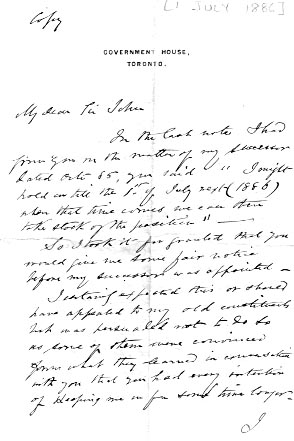 [1 JULY 1886]
Copy
GOVERNMENT HOUSE,
TORONTO.
My dear Sir John
In the last note I had
from you on the matter of my successor
dated Octr 85, you said "I might
hold on till the 1st of July next (1886)
when that time comes we can then
take stock of the position" —
So I took it for granted that you
would give me some fair notice
before my successor was appointed —
I certainly expected this or should
have appealed to my old constituents
but was persuaded not to do so
as some of them were convinced
from what they learned in conversation
with you that you had every intention
of keeping me in for some time longer —
I